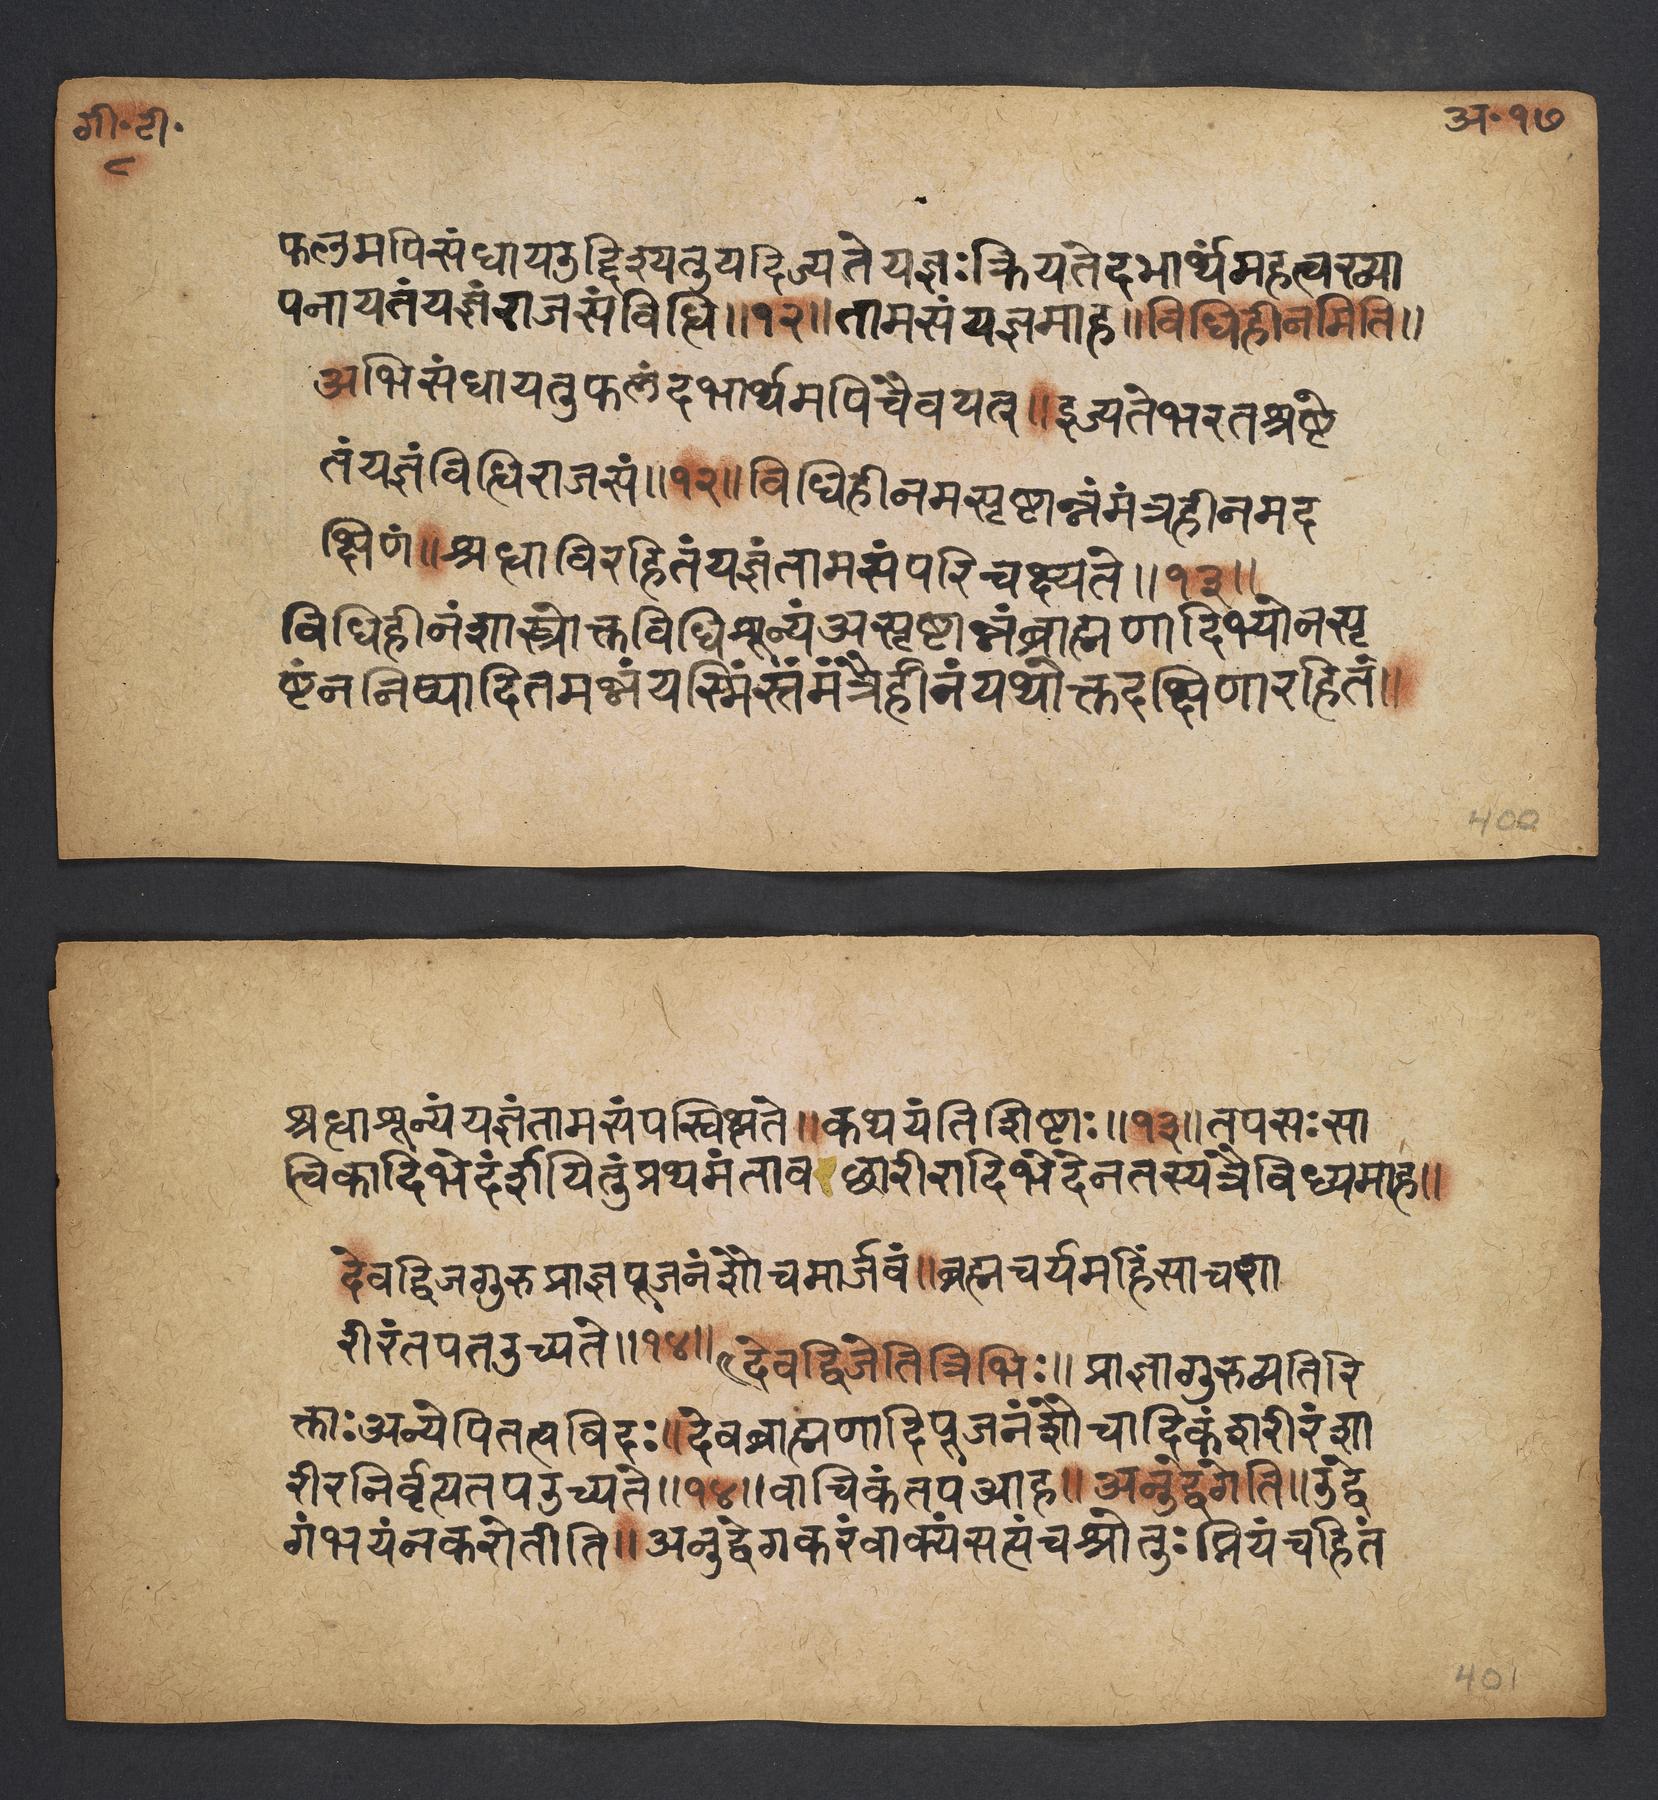 गी॰टी॰
८
अ॰१७
फलमपिसंधायउद्दिश्ययत्तुयदिज्यतेयज्ञःक्रियतेदभार्थंमहत्वख्या
पनायतंयज्ञंराजसंविधि॥१२॥तामसंयज्ञमाह॥विधिहीनमिति॥
अभिसंधायतुफलंदभार्थमपिचैवयत्॥इज्यतेभरतश्रेष्ट
तंयज्ञंविधिराजसं॥१२॥विधिहीनमसृष्टान्नंमंत्रहीनमद
क्षिणं॥श्रधाविरहितंयज्ञंतामसंपरिचक्ष्यते॥१३॥
विधिहीनंशास्त्रोक्तविधिशून्यंअसृष्टान्नंब्राह्मणादिभ्योनसृ
ष्टंननिष्पादितमन्नंयस्मिंस्तंमंत्रैर्हीनंयथोक्तदक्षिणारहितं॥
400
श्रधाशून्यंयज्ञंतामसंपरिचक्ष्यते॥कथयंतिशिष्टाः॥१३॥तपसःसा
त्विकादिभेदंर्शयितुंप्रथमंतावछारीरादिभेदेनतस्यत्रैविध्यमाह॥
देवद्विजगुरुप्राज्ञपूजनंशौचमार्जवं॥ब्रह्मचर्यमहिंसाचशा
रीरंतपतउच्यते॥१४॥देवद्विजेतित्रिभिः॥प्राज्ञागुरुव्यतिरि
क्ताःअन्येपितत्वविदः॥देवब्राह्मणादिपूजनंशौचादिकंशरीरंशा
रीरनिर्वृत्यतपउच्यते॥१४॥वाचिकंतपआह॥अनुद्वेगेति॥उद्वे
गंभयंनकरोतीति॥अनुद्वेगकरंवाक्यंसत्यंचश्रोतुःप्रियंचहितं
401